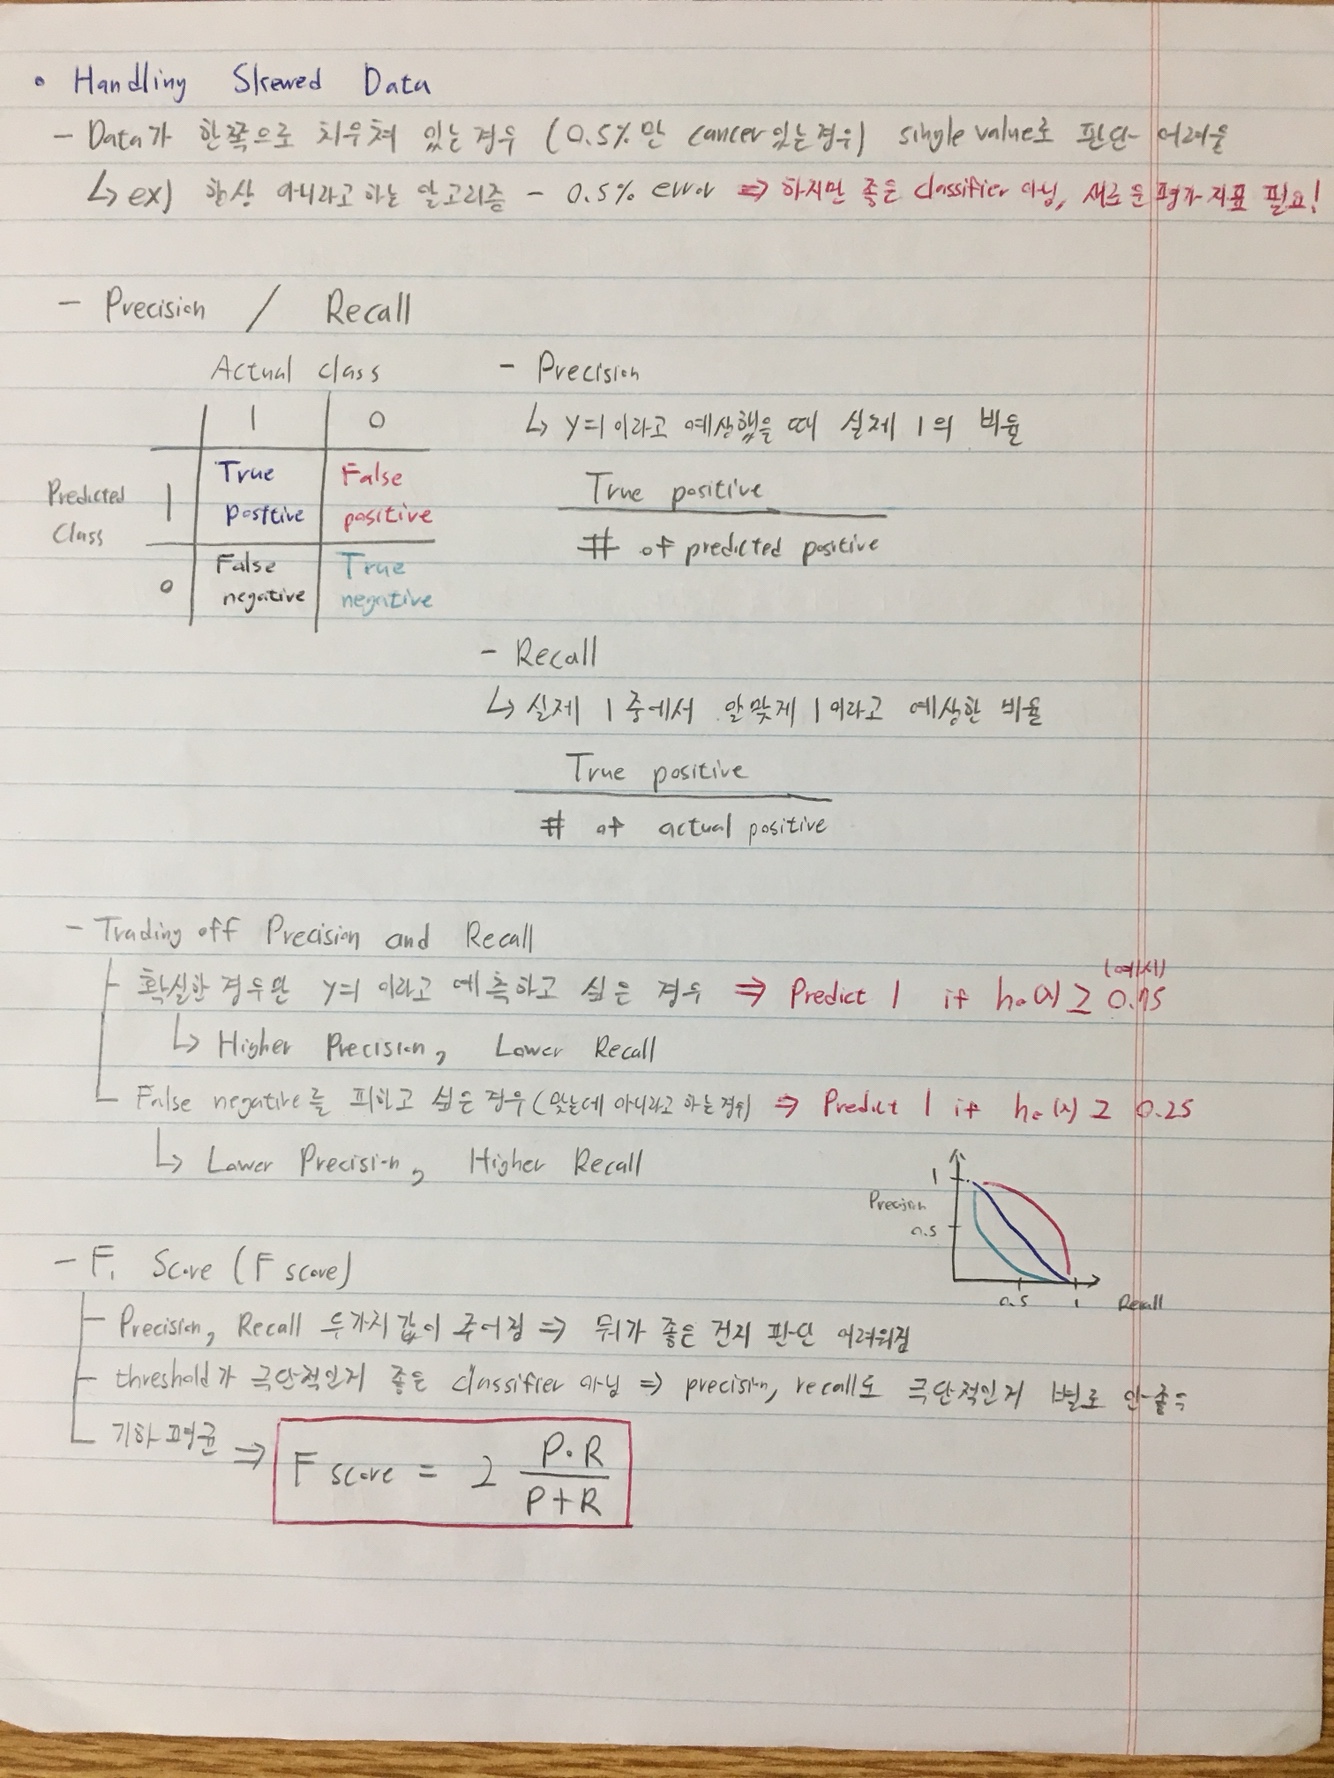 • Handling Skewed Data
- Data가 한쪽으로 치우쳐 있는 경우 (0.5%만 cancer 있는 경우) single value로 판단 어려움
↳ ex) 항상 아니라고 하는 알고리즘 - 0.5% error ⇒ 하지만 좋은 classifier 아님, 새로운 평가 지표 필요!
- Precision / Recall
Actual class
1 0
Predicted Class
1 True positive False positive
0 False negative True negative
- Precision
↳ y=1이라고 예상했을 때 실제 1의 비율
True positive
# of predicted positive
- Recall
↳ 실제 1 중에서 알맞게 1이라고 예상한 비율
True positive
# of actual positive
- Trading off Precision and Recall
(예시)
확실한 경우만 y=1 이라고 예측하고 싶은 경우 ⇒ Predict 1 if hθ(x) ≥ 0.75
↳ Higher Precision, Lower Recall
False negative를 피하고 싶은 경우 (맞는데 아니라고 하는 경우) ⇒ Predict 1 if hθ(x) ≥ 0.25
↳ Lower Precision, Higher Recall
1
Precision
0.5
0.5 1 Recall
- F₁ Score (F score)
Precision, Recall 두가지 값이 주어짐 ⇒ 뭐가 좋은 건지 판단 어려워짐
threshold가 극단적인게 좋은 classifier 아님 ⇒ precision, recall도 극단적인게 별로 안좋음
기하평균 ⇒ F score = 2 P·R / P+R